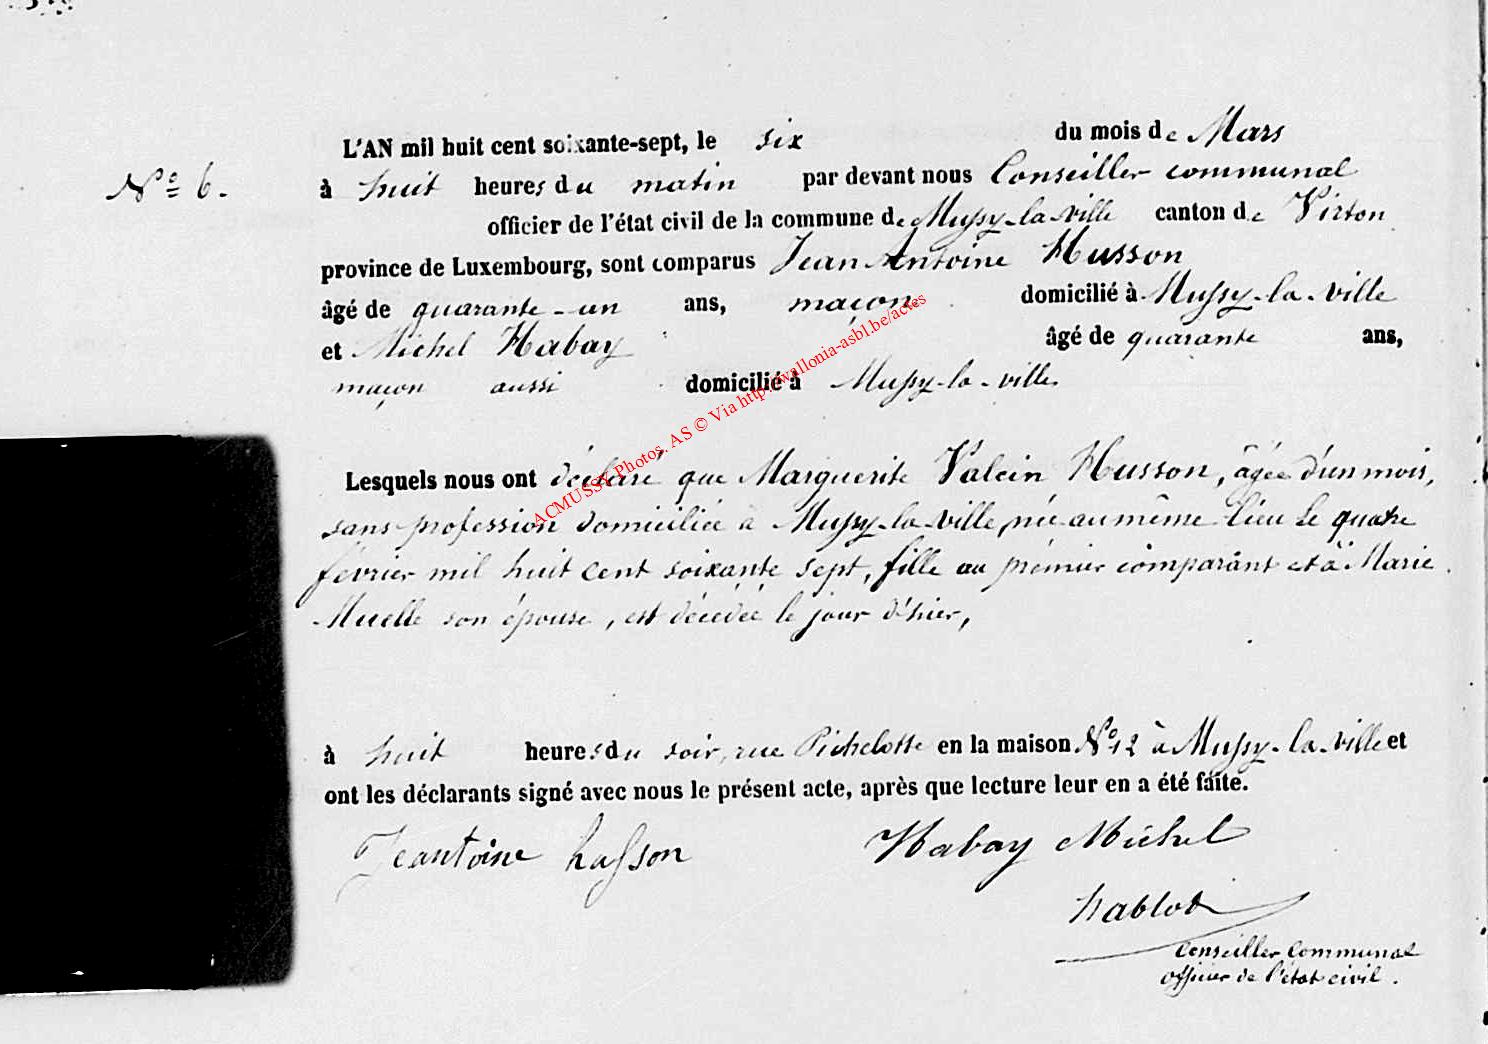 L'AN mil huit cent soixante-sept, le six du mois de Mars
N° 6. à huit heures du matin par devant nous Conseiller communal
officier de l'état civil de la commune de Mussy-la-ville canton de Virton
province de Luxembourg, sont comparus Jean Antoine Husson
âgé de quarante-un ans, maçon domicilié à Mussy-la-ville
et Michel Habay âgé de quarante ans,
maçon aussi domicilié à Mussy-la-ville
ACMUSSY Photos. AS © Via http://wallonia-asbl.be/actes
Lesquels nous ont déclaré que Marguerite Valcin Husson, âgée d'un mois,
sans profession domiciliée à Mussy-la-ville, née au même lieu le quatre
février mil huit cent soixante sept, fille au prémier comparant et à Marie
Muelle son épouse, est décédée le jour d'hier,
à huit heures du soir, rue Pichelotte en la maison N° 12 à Mussy-la-ville et
ont les déclarants signé avec nous le présent acte, après que lecture leur en a été faite.
Jeantoine husson Habay Michel
hablot
Conseiller Communal
officier de l'état civil.